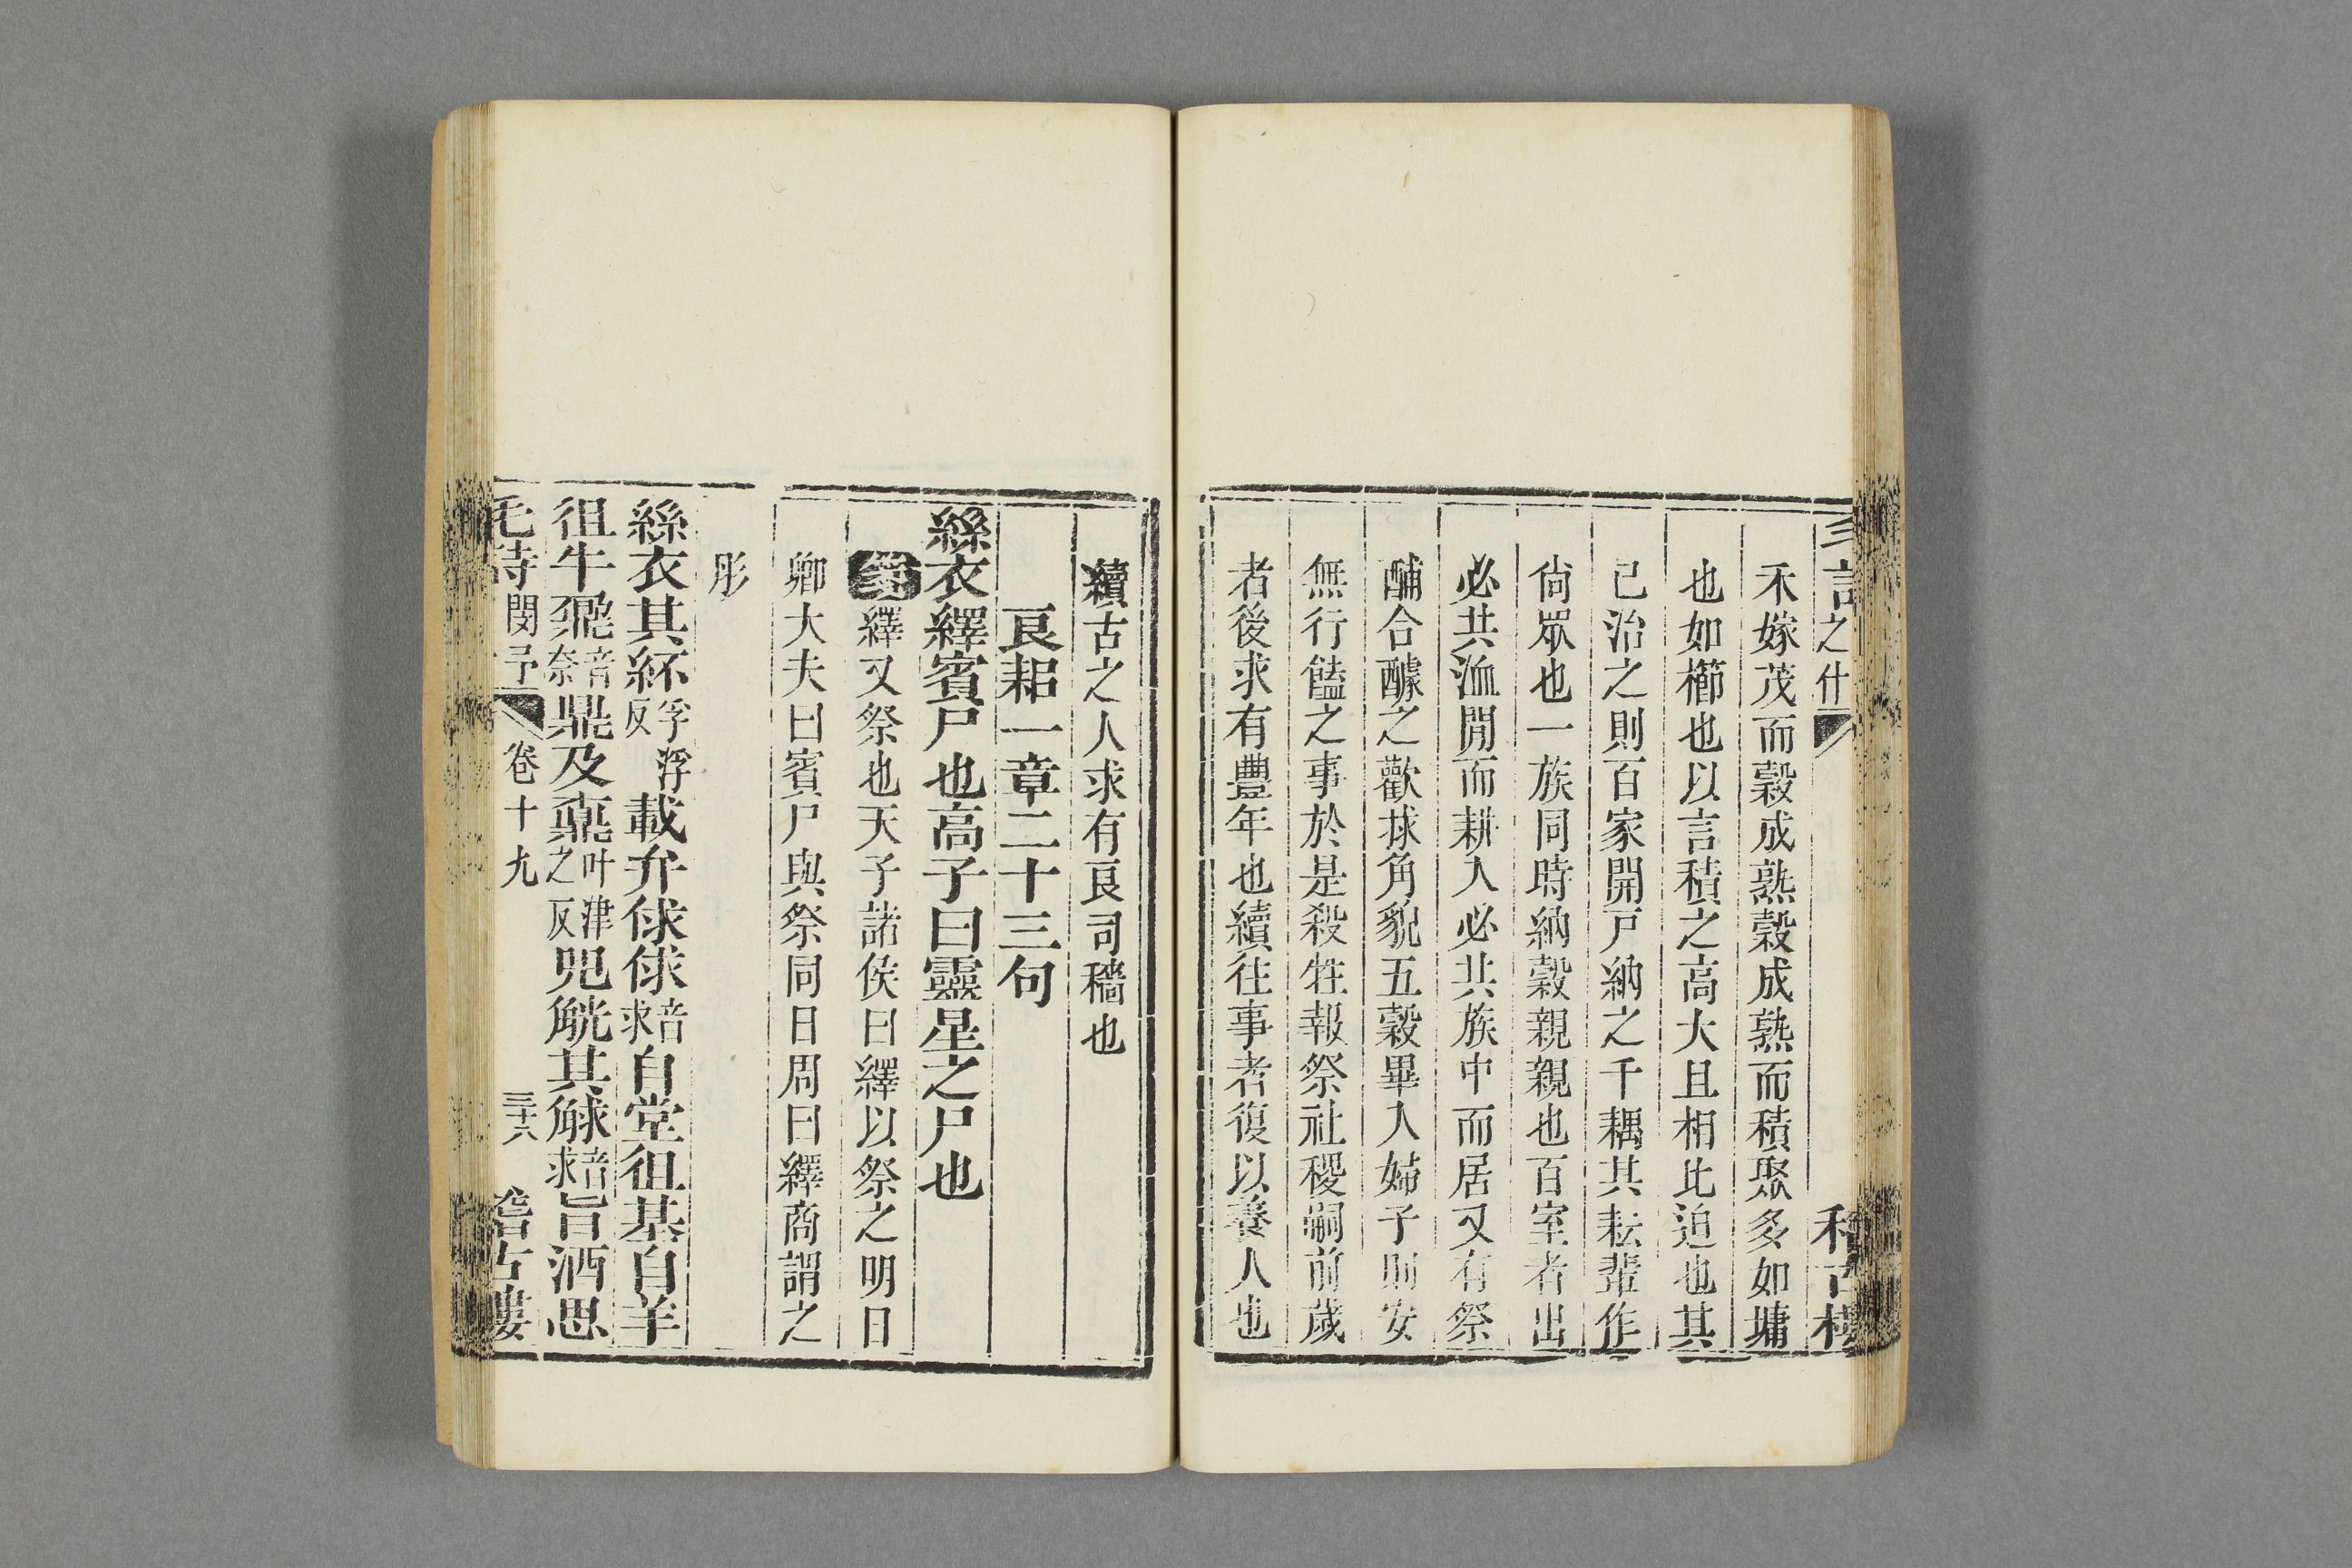 言之什
禾嫁茂而穀成熟穀成熟而積聚多如墉
也如櫛也以言積之高大且相比迫也其
已治之則百家開戸納之千耦其耘輩作
尙眾也一族同時納穀親親也百室者出
必共洫閒而耕入必共族中而居又有祭
酺合醵之歡捄角貌五穀畢入婦子則安
無行饁之事於是殺牲報祭社稷嗣前歲
者後求有豐年也續往事者復以養人也
續古之人求有良司穡也
良耜一章二十三句
絲衣繹賓尸也高子曰靈星之尸也
繹又祭也天子諸侯曰繹以祭之明日
卿大夫曰賓尸與祭同日周曰繹商謂之
肜
絲衣其紑孚浮反載弁俅俅音求自堂徂基自羊
徂牛鼐音奈鼎及鼒叶津之反兕觥其觩音求旨酒思
毛詩閔予 卷十九 三十六 稽古樓